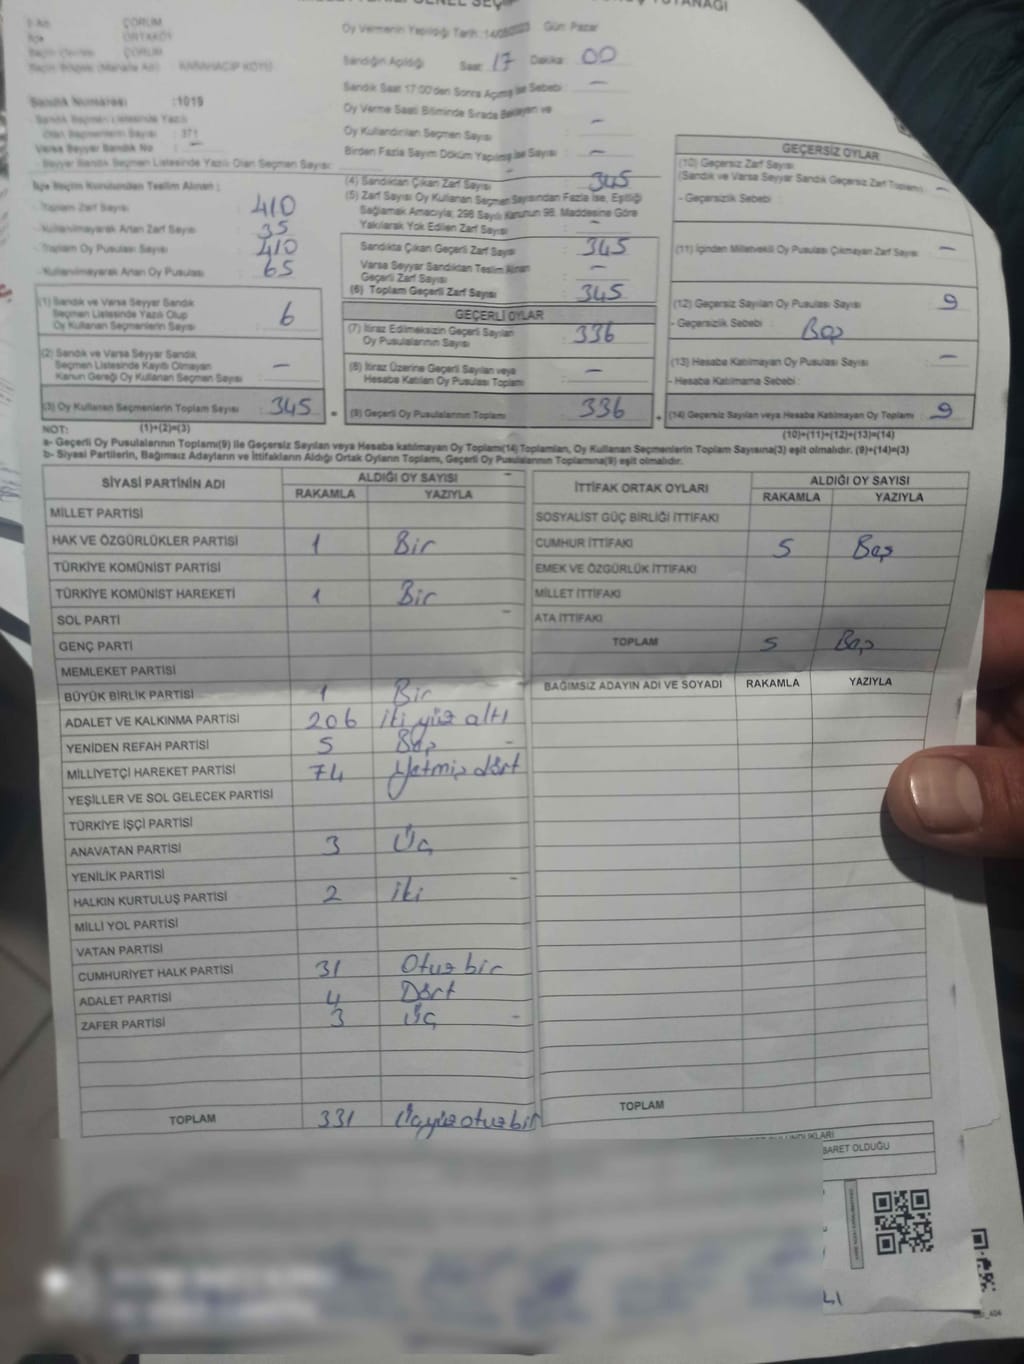 TUTANAĞI
ÇORUM
ORTAKÖY
ÇORUM
Oy Vermenin Yapıldığı Tarih :14/05/2023 Gün: Pazar
Sandığın Açıldığı Saat: 17 Dakika: 00
Sandık Saat 17:00'den Sonra Açılmış İse Sebebi : —
Oy Verme Saati Bitiminde Sırada Bekleyen ve
Oy Kullandırılan Seçmen Sayısı : —
Birden Fazla Sayım Döküm Yapılmış İse Sayısı : —
Sandık Numarası :1019
- Sandık Seçmen Listesinde Yazılı
Olan Seçmenlerin Sayısı : 371
Varsa Seyyar Sandık No : —
- Seyyar Sandık Seçmen Listesinde Yazılı Olan Seçmen Sayısı:
İlçe Seçim Kurulundan Teslim Alınan ;
- Toplam Zarf Sayısı : 410
- Kullanılmayarak Artan Zarf Sayısı : 35
- Toplam Oy Pusulası Sayısı : 410
- Kullanılmayarak Artan Oy Pusulası : 65
(1) Sandık ve Varsa Seyyar Sandık
Seçmen Listesinde Yazılı Olup
Oy Kullanan Seçmenlerin Sayısı : 6
(2) Sandık ve Varsa Seyyar Sandık
Seçmen Listesinde Kayıtlı Olmayan
Kanun Gereği Oy Kullanan Seçmen Sayısı : —
(3) Oy Kullanan Seçmenlerin Toplam Sayısı : 345
(4) Sandıktan Çıkan Zarf Sayısı : 345
(5) Zarf Sayısı Oy Kullanan Seçmen Sayısından Fazla İse, Eşitliği
Sağlamak Amacıyla; 298 Sayılı Kanunun 98. Maddesine Göre
Yakılarak Yok Edilen Zarf Sayısı : —
Sandıkta Çıkan Geçerli Zarf Sayısı : 345
Varsa Seyyar Sandıktan Teslim Alınan
Geçerli Zarf Sayısı : —
(6) Toplam Geçerli Zarf Sayısı : 345
GEÇERLİ OYLAR
(7) İtiraz Edilmeksizin Geçerli Sayılan
Oy Pusulalarının Sayısı : 336
(8) İtiraz Üzerine Geçerli Sayılan veya
Hesaba Katılan Oy Pusulası Toplamı : —
= (9) Geçerli Oy Pusulalarının Toplamı : 336
GEÇERSİZ OYLAR
(10) Geçersiz Zarf Sayısı
(Sandık ve Varsa Seyyar Sandık Geçersiz Zarf Toplamı) : —
- Geçersizlik Sebebi :
(11) İçinden Milletvekili Oy Pusulası Çıkmayan Zarf Sayısı : —
(12) Geçersiz Sayılan Oy Pusulası Sayısı : 9
- Geçersizlik Sebebi : Boş
(13) Hesaba Katılmayan Oy Pusulası Sayısı : —
- Hesaba Katılmama Sebebi :
+ (14) Geçersiz Sayılan veya Hesaba Katılmayan Oy Toplamı : 9
NOT: (1)+(2)=(3) (10)+(11)+(12)+(13)=(14)
a- Geçerli Oy Pusulalarının Toplamı(9) ile Geçersiz Sayılan veya Hesaba katılmayan Oy Toplamı(14) Toplamları, Oy Kullanan Seçmenlerin Toplam Sayısına(3) eşit olmalıdır. (9)+(14)=(3)
b- Siyasi Partilerin, Bağımsız Adayların ve İttifakların Aldığı Ortak Oyların Toplamı, Geçerli Oy Pusulalarının Toplamına(9) eşit olmalıdır.
SİYASİ PARTİNİN ADI ALDIĞI OY SAYISI
RAKAMLA YAZIYLA
MİLLET PARTİSİ
HAK VE ÖZGÜRLÜKLER PARTİSİ 1 Bir
TÜRKİYE KOMÜNİST PARTİSİ
TÜRKİYE KOMÜNİST HAREKETİ 1 Bir
SOL PARTİ
GENÇ PARTİ
MEMLEKET PARTİSİ
BÜYÜK BİRLİK PARTİSİ 1 Bir
ADALET VE KALKINMA PARTİSİ 206 iki yüz altı
YENİDEN REFAH PARTİSİ 5 Beş
MİLLİYETÇİ HAREKET PARTİSİ 74 Yetmiş dört
YEŞİLLER VE SOL GELECEK PARTİSİ
TÜRKİYE İŞÇİ PARTİSİ
ANAVATAN PARTİSİ 3 Üç
YENİLİK PARTİSİ
HALKIN KURTULUŞ PARTİSİ 2 iki
MİLLİ YOL PARTİSİ
VATAN PARTİSİ
CUMHURİYET HALK PARTİSİ 31 Otuz bir
ADALET PARTİSİ 4 Dört
ZAFER PARTİSİ 3 Üç
TOPLAM 331 Üçyüz otuz bir
İTTİFAK ORTAK OYLARI ALDIĞI OY SAYISI
RAKAMLA YAZIYLA
SOSYALİST GÜÇ BİRLİĞİ İTTİFAKI
CUMHUR İTTİFAKI 5 Beş
EMEK VE ÖZGÜRLÜK İTTİFAKI
MİLLET İTTİFAKI
ATA İTTİFAKI
TOPLAM 5 Beş
BAĞIMSIZ ADAYIN ADI VE SOYADI RAKAMLA YAZIYLA
TOPLAM
BARET OLDUĞU